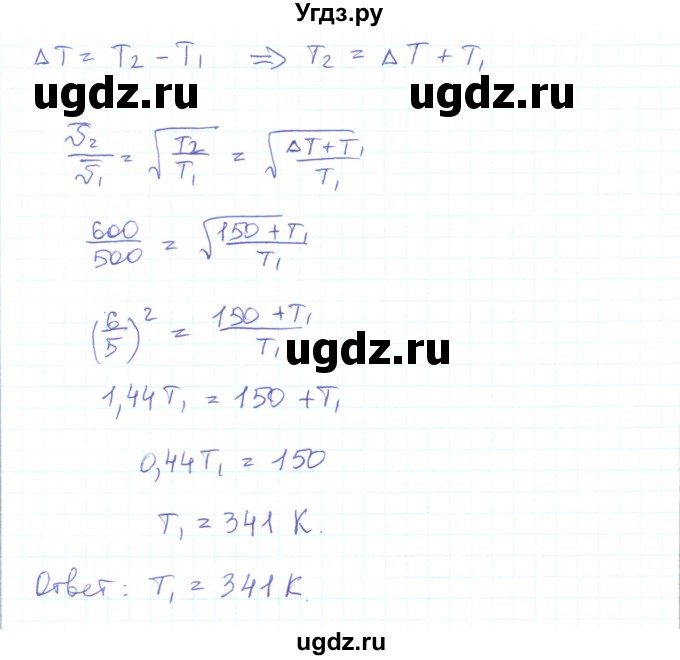 Угдз.ру
ΔT = T₂ - T₁ ⇒ T₂ = ΔT + T₁
ugdz.ru ugdz.ru
v̅₂/v̅₁ = √(T₂/T₁) = √((ΔT + T₁)/T₁)
600/500 = √((150 + T₁)/T₁)
(6/5)² = (150 + T₁)/T₁
ugdz.ru
1,44T₁ = 150 + T₁
0,44T₁ = 150
T₁ = 341 К.
Ответ: T₁ = 341 К.
ugdz.ru